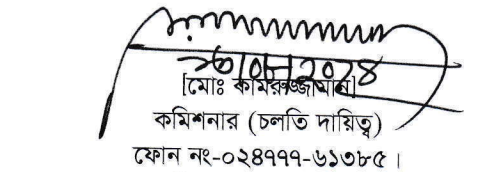 [মোঃ কামরুজ্জামান]
কমিশনার (চলতি দায়িত্ব)
ফোন নং-০২৪৭৭৭-৬১৩৮৫।